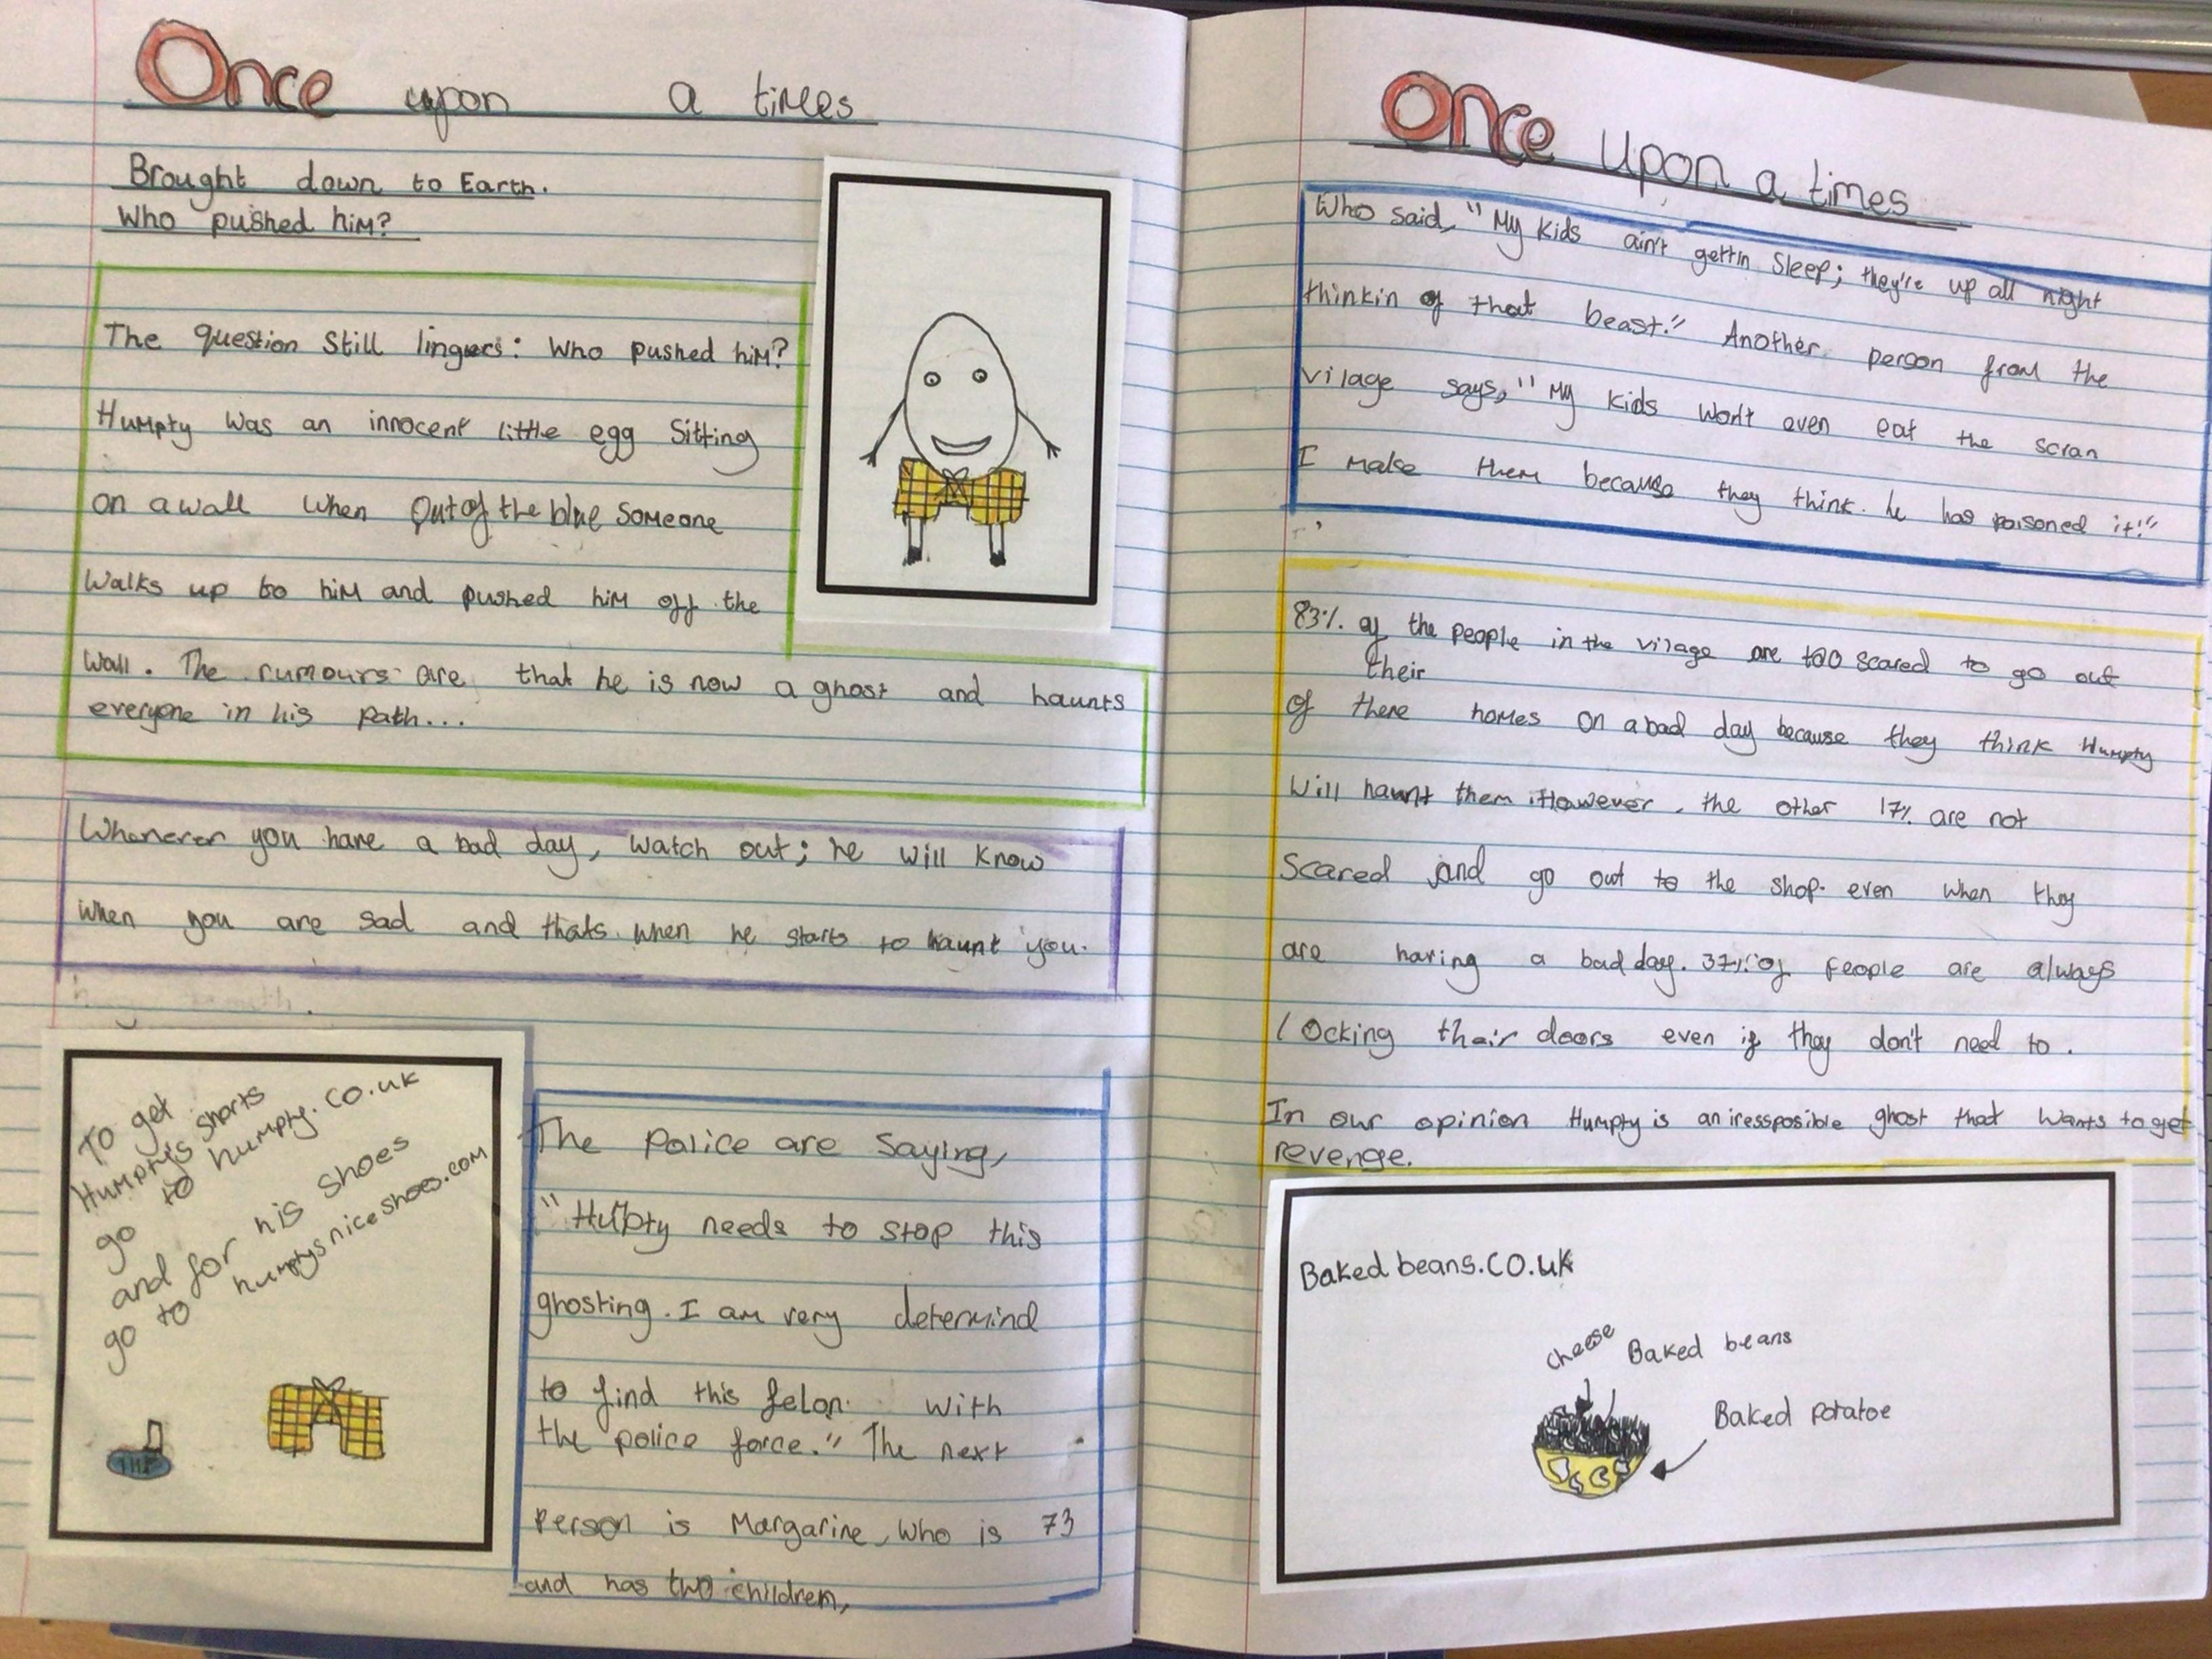 Once upon a times
Brought down to Earth.
Who pushed him?
The question still lingers: Who pushed him?
Humpty was an innocent little egg sitting
on a wall when out of the blue someone
walks up to him and pushed him off the
wall. The rumours are that he is now a ghost and haunts
everyone in his path...
Whenever you have a bad day, watch out; he will know
when you are sad and thats when he starts to haunt you.
To get
Humpty's shorts
go to humpty.co.uk
and for his shoes
go to humptysniceshoes.com
The police are saying,
"Hubty needs to stop this
ghosting. I am very determind
to find this felon with
the police force." The next
person is Margarine, who is 73
and has two children,
Once upon a times
Who said, "My kids ain't gettin sleep; they're up all night
thinkin of that beast." Another person from the
vilage says, "My kids won't even eat the scran
I make them because they think he has poisoned it!"
83% of the people in the vilage are too scared to go out
their
of there homes on a bad day because they think Humpty
will haunt them. However, the other 17% are not
scared and go out to the shop even when they
are having a bad day. 37% of people are always
locking their doors even if they don't need to.
In our opinion Humpty is an iressposible ghost that wants to get
revenge.
Bakedbeans.co.uk
cheese Baked beans
Baked potatoe